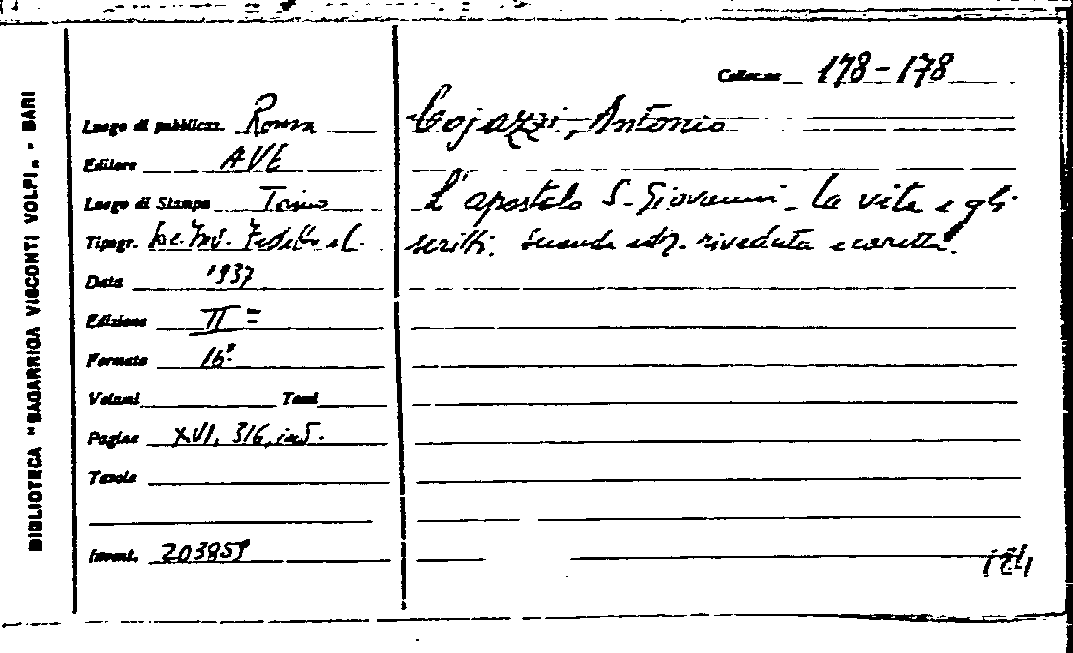 BIBLIOTECA "SAGARRIGA VISCONTI VOLPI" - BARI
Collocaz. 178-178
Luogo di pubblicaz. Roma
Editore AVE
Luogo di Stampa Torino
Tipogr.
Data 1937
Edizione II=
Formato 16°
Volumi Tomi
Pagine XVI, 316,
Tavole
Invent. 203859
Cojazzi, Antonio
L'apostolo S. Giovanni - La vita e gli
scritti. Seconda ediz. riveduta e corretta.